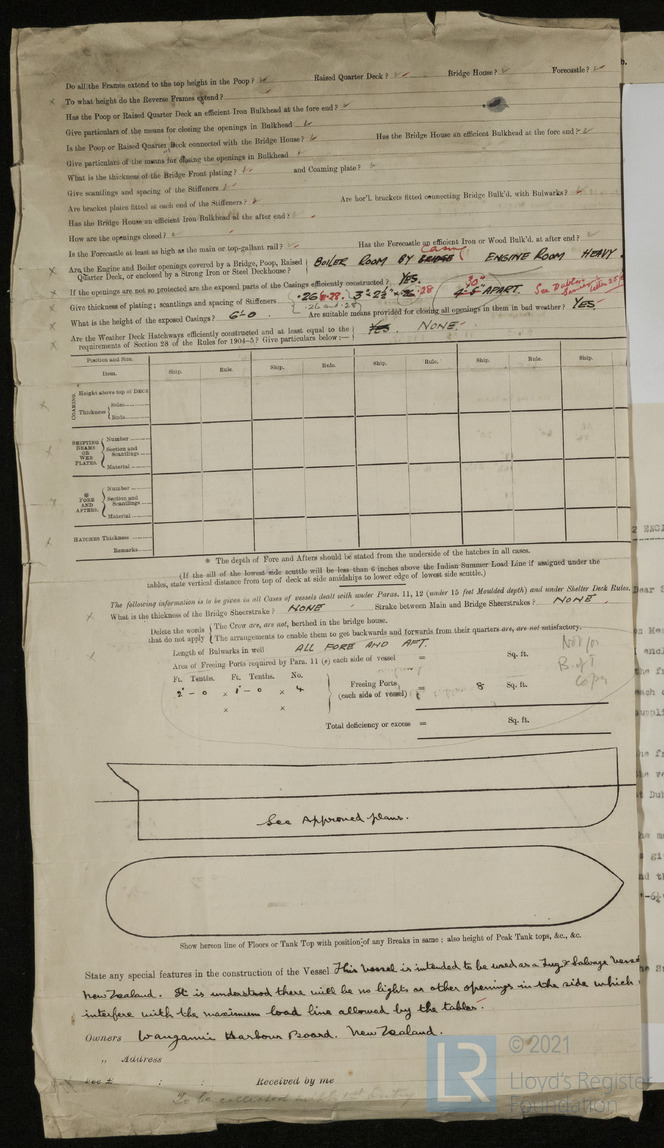 Do all the Frames extend to the top height in the Poop? Raised Quarter Deck? Bridge House? Forecastle?
To what height do the Reverse Frames extend?
Has the Poop or Raised Quarter Deck an efficient Iron Bulkhead at the fore end?
Give particulars of the means for closing the openings in Bulkhead
Is the Poop or Raised Quarter Deck connected with the Bridge House? Has the Bridge House an efficient Bulkhead at the fore end?
Give particulars of the means for closing the openings in Bulkhead
What is the thickness of the Bridge Front plating? and Coaming plate?
Give scantlings and spacing of the Stiffeners
Are bracket plates fitted at each end of the Stiffeners? Are hor'l. brackets fitted connecting Bridge Bulk'd. with Bulwarks?
Has the Bridge House an efficient Iron Bulkhead at the after end?
How are the openings closed?
Is the Forecastle at least as high as the main or top-gallant rail? Has the Forecastle an efficient Iron or Wood Bulk'd. at after end?
Casing
Are the Engine and Boiler openings covered by a Bridge, Poop, Raised BOILER ROOM BY BRIDGE ENGINE ROOM HEAVY.
Quarter Deck, or enclosed by a Strong Iron or Steel Deckhouse?
If the openings are not so protected are the exposed parts of the Casings efficiently constructed? YES.
Give thickness of plating; scantlings and spacing of Stiffeners .26 & .28. 3" 2½" × .28 30" APART. See Dublin
.26 and .28
What is the height of the exposed Casings? 6'-0 Are suitable means provided for closing all openings in them in bad weather? YES.
Are the Weather Deck Hatchways efficiently constructed and at least equal to the YES. NONE.
requirements of Section 28 of the Rules for 1904-5? Give particulars below:—
Position and Size.
Item. Ship. Rule. Ship. Rule. Ship. Rule. Ship. Rule. Ship.
COAMING Height above top of DECK
Thickness Sides
Ends
SHIFTING BEAMS OR WEB PLATES. Number
Section and Scantlings
Material
* FORE AND AFTERS. Number
Section and Scantlings
Material
HATCHES Thickness
Remarks
* The depth of Fore and Afters should be stated from the underside of the hatches in all cases.
(If the sill of the lowest side scuttle will be less than 6 inches above the Indian Summer Load Line if assigned under the
tables, state vertical distance from top of deck at side amidships to lower edge of lowest side scuttle.)
The following information is to be given in all Cases of vessels dealt with under Paras. 11, 12 (under 15 feet Moulded depth) and under Shelter Deck Rules.
What is the thickness of the Bridge Sheerstrake? NONE Strake between Main and Bridge Sheerstrakes? NONE.
Delete the words that do not apply
The Crew are, are not, berthed in the bridge house.
The arrangements to enable them to get backwards and forwards from their quarters are, are not satisfactory.
Length of Bulwarks in well ALL FORE AND AFT.
Area of Freeing Ports required by Para. 11 (e) each side of vessel = Sq. ft.
Not for B. of T Copy
Ft. Tenths. Ft. Tenths. No.
2' - 0 × 1' - 0 × 4 Freeing Ports (each side of vessel) = 8 Sq. ft.
× ×
Total deficiency or excess = Sq. ft.
See Approved plans.
Show hereon line of Floors or Tank Top with position of any Breaks in same; also height of Peak Tank tops, &c., &c.
State any special features in the construction of the Vessel This Vessel is intended to be used as a Tug & Salvage Vessel
New Zealand. It is understood there will be no lights or other openings in the side which
interfere with the maximum load line allowed by the tables.
Owners Wanganui Harbour Board. New Zealand.
„ Address
Fee £ : : Received by me
To be collected
LR © 2021
Lloyd's Register
Foundation